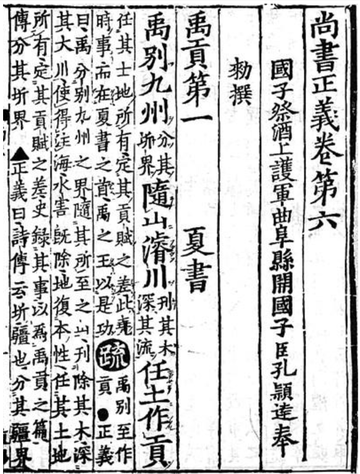 尚書正義卷第六
國子祭酒上護軍曲阜縣開國子臣孔穎達奉
勑撰
禹貢第一 夏書
禹別九州 分其圻界 隨山濬川 刊其木深其流 任土作貢
任其土地所有定其貢賦之差此堯
時事而在夏書之首禹之王以是功 疏 禹別至作
貢●正義
曰禹分別九州之界隨其所至之山刊除其木深
其大川使得注海水害既除地復本性任其土地
所有定其貢賦之差史録其事以為禹貢之篇
傳分其圻界 ▲正義曰詩傳云圻疆也分其疆界